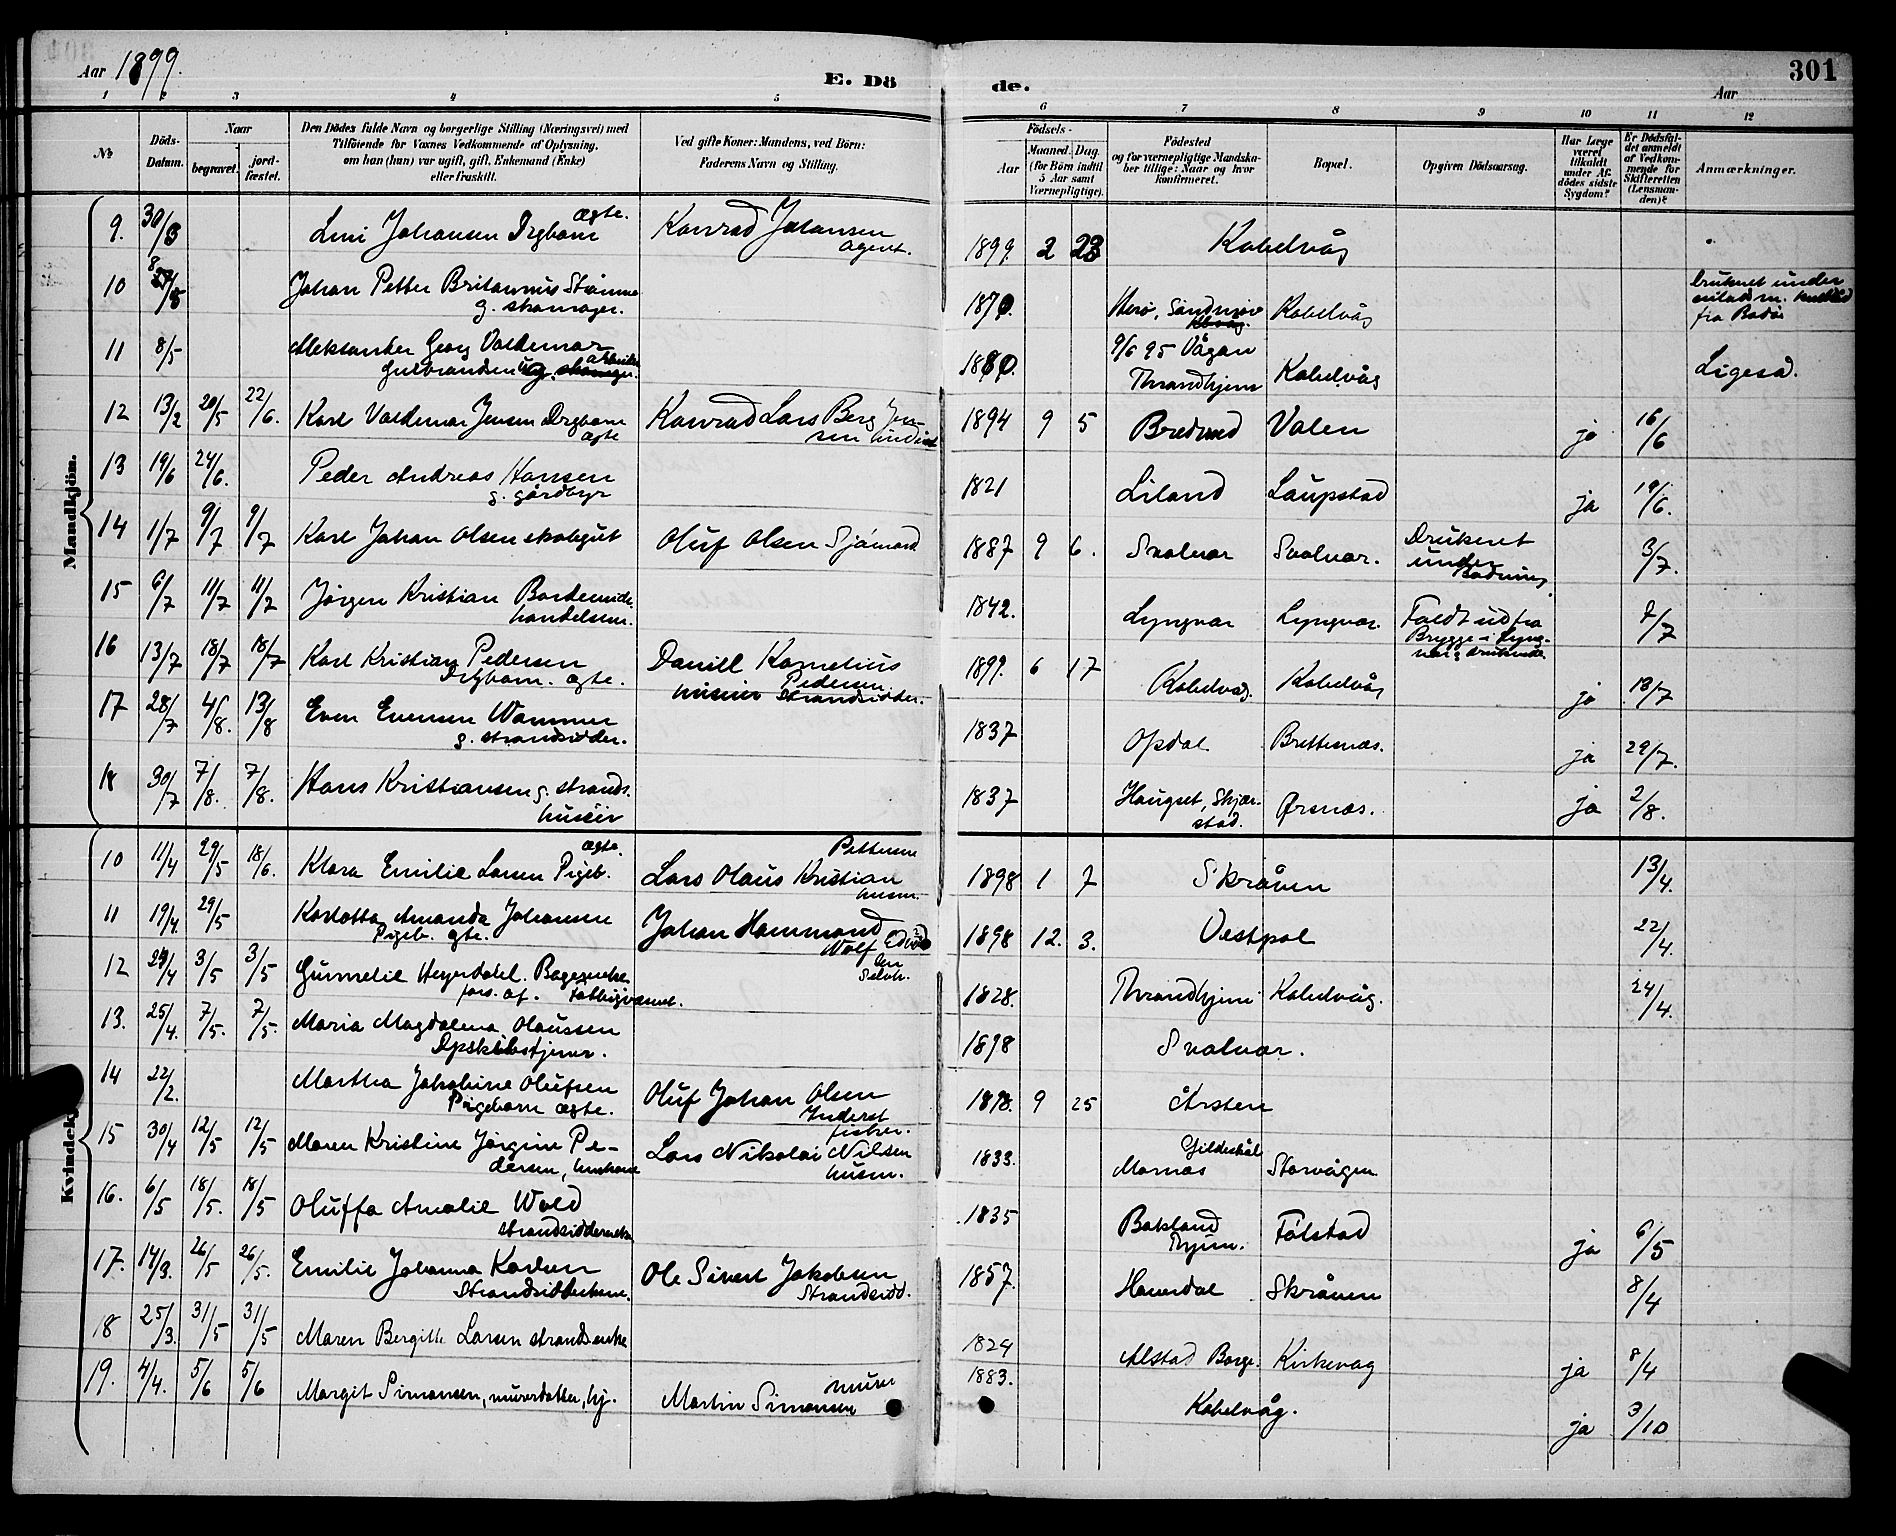 Aar 1899.
E. Dö
de.
301
Aar
1 2 3 4 5 6 7 8 9 10 11 12
№
Döds-
Datum.
Naar
begravet.
jord-
fæstet.
Den Dödes fulde Navn og borgerlige Stilling (Næringsvei) med
Tilföiende for Voxnes Vedkommende af Oplysning,
om han (hun) var ugift, gift, Enkemand (Enke)
eller fraskilt.
Ved gifte Koner: Mandens, ved Börn:
Faderens Navn og Stilling.
Födsels-
Aar
Maaned. Dag.
(for Börn indtil
5 Aar samt
Værnepligtige).
Födested
og for værnepligtige Mandska-
ber tillige: Naar og hvor
konfirmeret.
Bopæl.
Opgiven Dödsaarsag.
Har Læge
været
tilkaldt
under Af-
dödes sidste
Sygdom?
Er Dödsfal-
det anmeldt
af Vedkom-
mende for
Skifteretten
(Lensman-
den)?
Anmærkninger.
Mandkjön.
9. 30/3 Leni Johansen Drgbarn ægte. Konrad Johansen agent. 1899 2 23 Kabelvåg
10 8/8 Johan Petter g. skomager. 1870. Herø, Søndmøre Kabelvåg druknet under fra Bodø
11 8/5 Aleksander Georg Valdemar Gulbrandsen ug. 1880. 9/6 95 Vågan Thrandhjem Kabelvåg Ligeså.
12 13/2 20/5 22/6. Karl Valdemar Jensen Drgbarn ægte Konrad Lars Berg Jensen 1894 9 5 Bredsund Valen ja 16/6
13 19/6 24/6. Peder Andreas Hansen g. gårdbrgr 1821 Liland Laupstad ja 19/6.
14 1/7 9/7 9/7 Karl Johan Olsen skolegut Oluf Olsen Sjømand 1887 9 6. Svolvær Svolvær. Druknet under Badning 3/7.
15 6/7 11/7 11/7 Jørgen Kristian handelsm. 1842. Lyngvær Lyngvær. Faldt ud fra Brygge i Lyngvær; druknede 7/7
16 13/7 18/7 18/7 Karl Kristian Pedersen Drgbarn. ægte. Daniel Kornelius Pedersen huseier Strandsidder. 1899. 6 17 Kabelvåg. Kabelvåg ja 13/7
17 28/7 4/8. 13/8 Even Evensen Wammer g. strandsidder. 1837 Opdal Brettesnæs. ja 29/7.
18 30/7 7/8. 7/8. Hans Kristiansen g. strands. huseier 1837 Haugset, Skjærstad. Ørsnæs. ja 2/8.
Kvindekjön
10 11/4 29/5 18/6. Klara Emilie Larsen Pigeb. ægte. Lars Olaus Kristian Pettersen husm. 1898 1 7 Skråven 13/4.
11 19/4. 29/5 Karlotta Amanda Johansen Pigeb. ægte. Johan Hammond Wolf 1898 12. 3. Vestpol 22/4.
12 24/4 3/5 3/5 Gunnelie Heyerdahl. Bagerenke fors. af. Fattigvæsenet. 1828. Thrandhjem Kabelvåg. 24/4.
13. 25/4. 7/5. 7/5. Maria Magdalena Olaussen 1898 Svolvær.
14 22/2. Martha Jakobine Olufsen Pigebarn ægte. Oluf Johan Olsen Inderst fisker. 1898. 9 25 Årsten
15 30/4 12/5 12/5 Maren Kristine Jørgine Pedersen, huskone Lars Nikolai Nilsen husm. 1833. Mornæs Gildeskål Storvågen
16. 6/5 18/5. 18/5 Oluffa Amalie Wold strandsidderenke 1835 Bakland Thjem. Følstad ja 6/5
17. 14/3. 26/5 26/5. Emilie Johanna Karlsen Strandsidderkone. Ole Sivert Jakobsen Strandsidd. 1857. Haverdal Skråven 8/4
18 25/3. 31/5 31/5 Maren Bergitte Larsen strandsenke 1824 Alstad Borge. Kirkevåg ja 8/4
19. 4/4. 5/6 5/6 Margit Simonsen, murerdatter, hj. Martin Simonsen murer 1883. Kabelvåg. ja 3/10